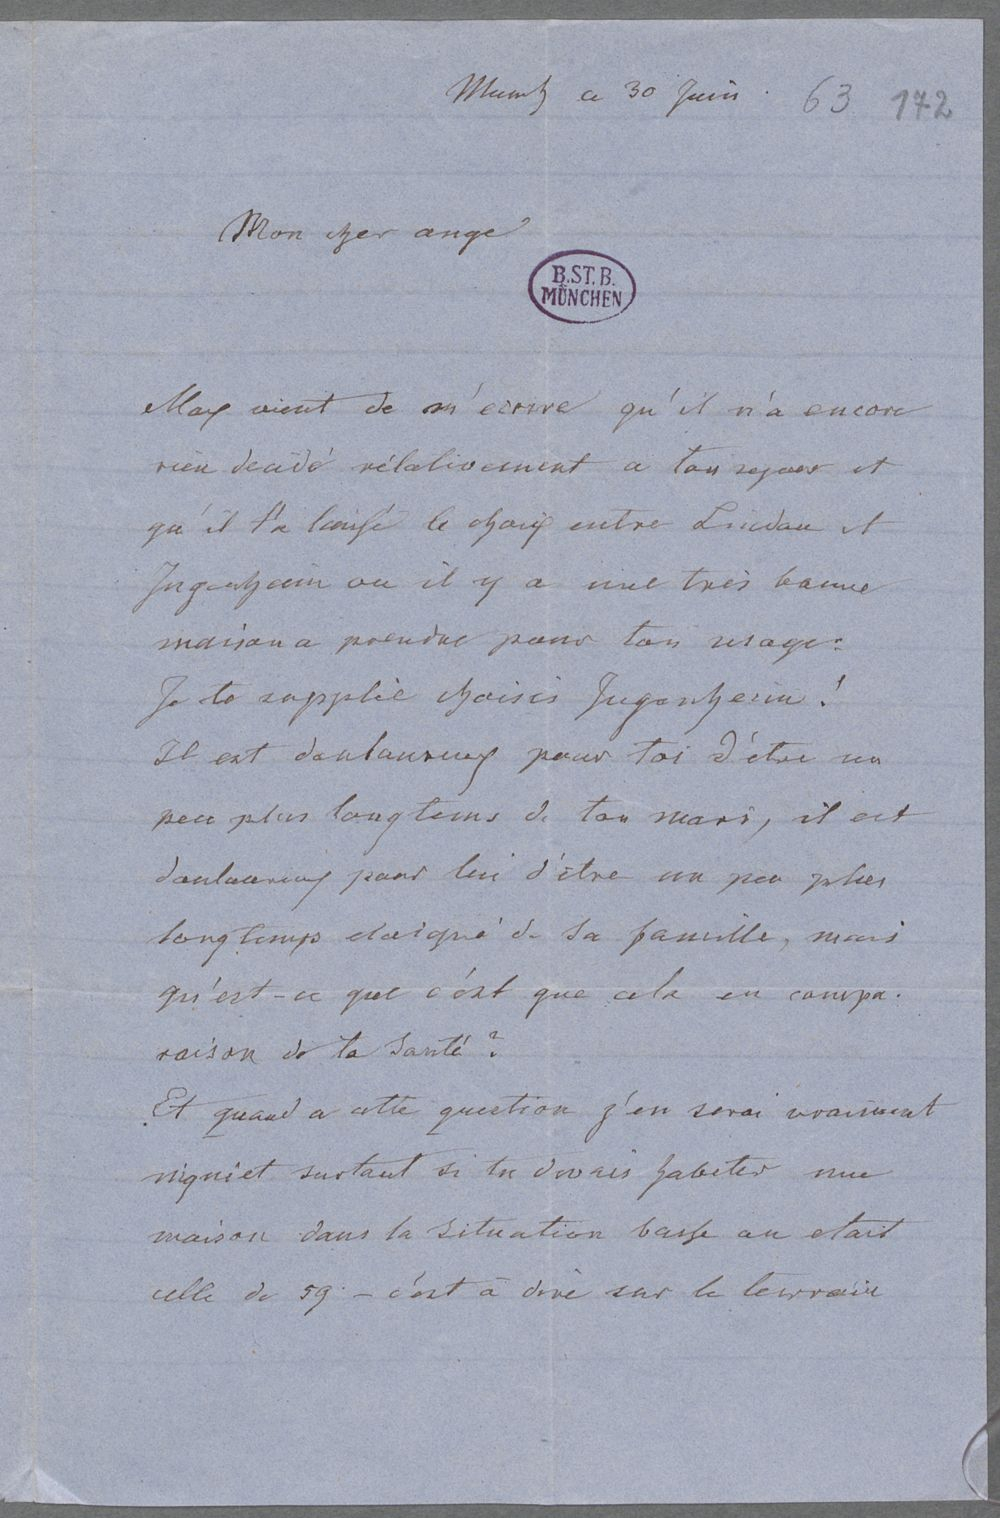 Munich ce 30 Juin. 63 172
Mon cher ange
B.ST.B.
MÜNCHEN
Max vient de m'ecrire qu'il n'a encore
rien decidé rélativement a ton sejour et
qu'il t'a laissé le choix entre Lindau et
Jugenheim ou il y a une très bonne
maison a prendre pour ton usage.
Je te supplie choisis Jugenheim!
Il est douloureux pour toi d'être un
peu plus longtems de ton mari, il est
douloureux pour lui d'être un peu plus
longtemps eloigné de sa famille, mais
qu'est-ce que c'est que cela en compa-
raison de ta santé?
Et quand a cette question j'en serai vraiment
inquiet surtout si tu devais habiter une
maison dans la situation basse ou etait
celle de 59 - c'est à dire sur le terrain